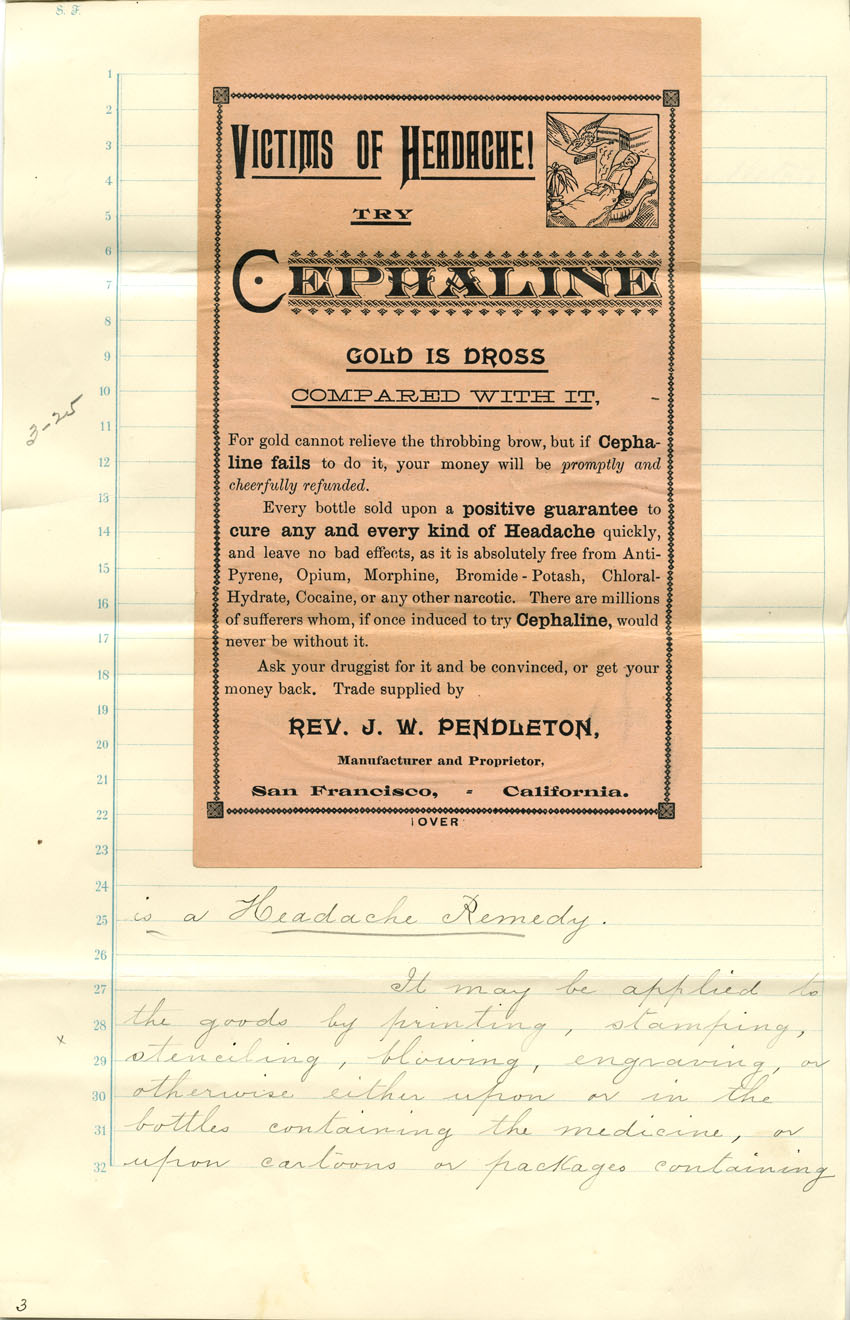 S. F.
1
2
3
4
5
6
7
8
9
10
11
12
13
14
15
16
17
18
19
20
21
22
23
24
25
26
27
28
29
30
31
32
3-25
VICTIMS OF HEADACHE!
TRY
CEPHALINE
GOLD IS DROSS
COMPARED WITH IT,
For gold cannot relieve the throbbing brow, but if Cepha-
line fails to do it, your money will be promptly and
cheerfully refunded.
Every bottle sold upon a positive guarantee to
cure any and every kind of Headache quickly,
and leave no bad effects, as it is absolutely free from Anti-
Pyrene, Opium, Morphine, Bromide-Potash, Chloral-
Hydrate, Cocaine, or any other narcotic. There are millions
of sufferers whom, if once induced to try Cephaline, would
never be without it.
Ask your druggist for it and be convinced, or get your
money back. Trade supplied by
REV. J. W. PENDLETON,
Manufacturer and Proprietor,
San Francisco, - California.
OVER
is a Headache Remedy.
It may be applied to
the goods by printing, stamping,
x
stenciling, blowing, engraving, or
otherwise either upon or in the
bottles containing the medicine, or
upon cartoons or packages containing
3